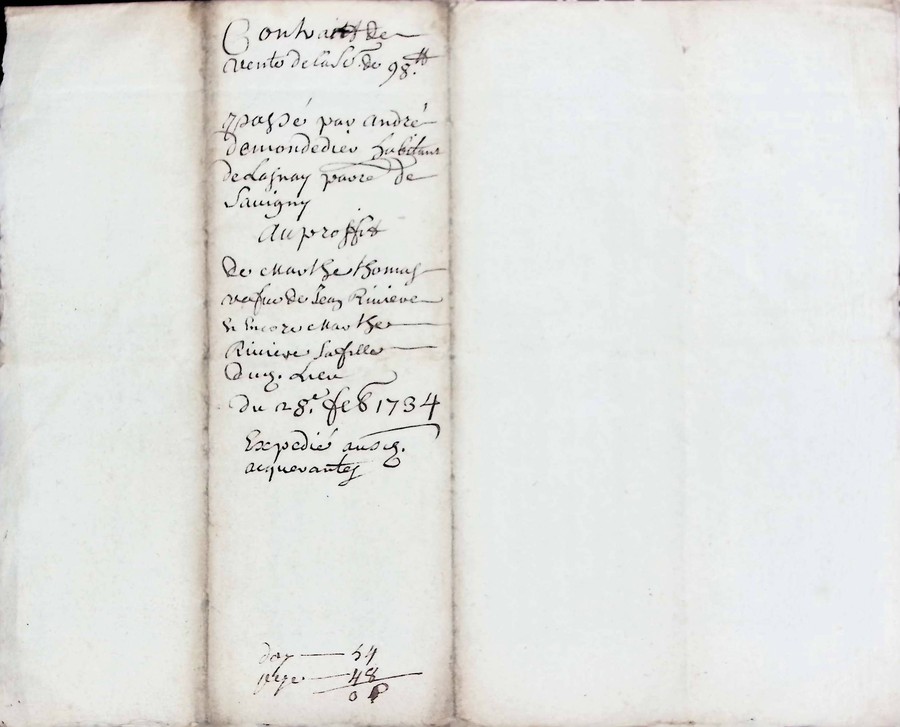 Contraitt de
vente de la So.e de 98.tt
passé par andré
demondedieu habitant
de Lasnay parre de
Savigny
Au proffit
de Marthe thomas
vefue de Jean Riviere
& Encore Marthe
Riviere Sa fille
Dud. Lieu
du 28.e feb 1734
Expedié ausd.
acquerantes
54
48
0